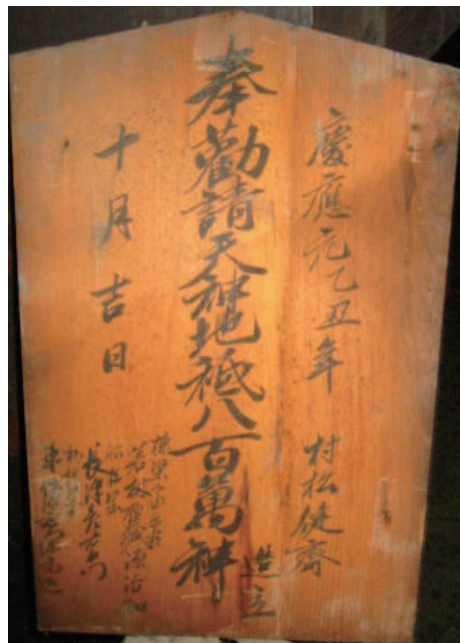 慶應元乙丑年 村松健齋
奉勸請天神地祇八百萬神 造立
十月吉日
棟梁
長澤